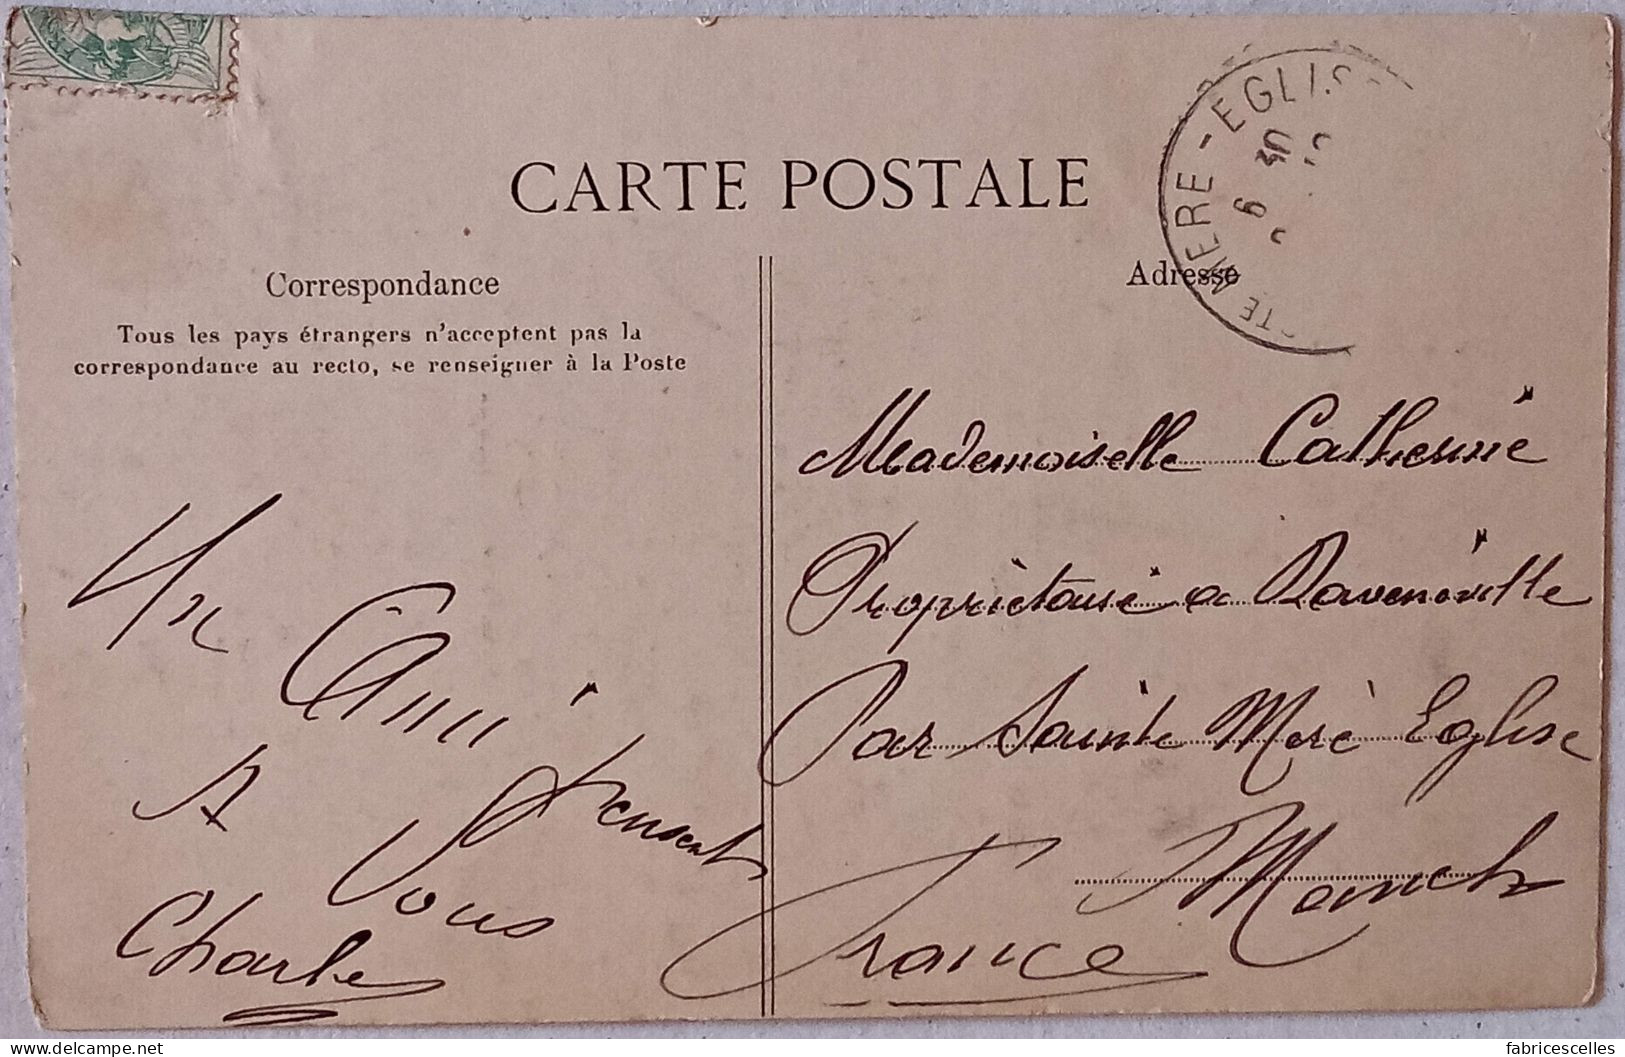 CARTE POSTALE
Correspondance
Tous les pays étrangers n'acceptent pas la
correspondance au recto, se renseigner à la Poste
Un
Ami
pensant
A
Vous
Charles
Adresse
STE MERE-EGLISE
Mademoiselle Catherine
Propriètaire a Ravenoville
Par Sainte Merè Eglise
Manche
France
www.delcampe.net
fabricescelles